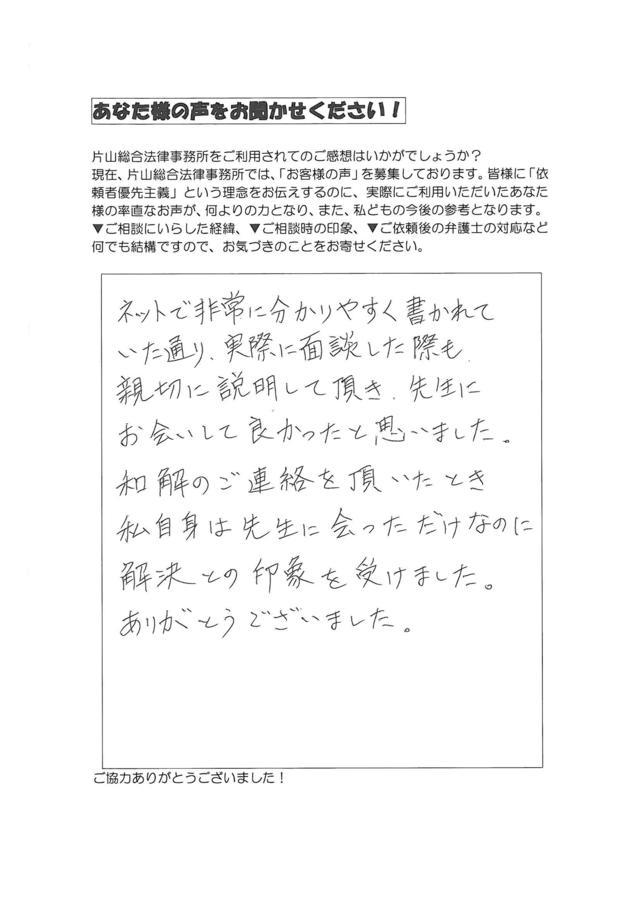 あなた様の声をお聞かせください！
片山総合法律事務所をご利用されてのご感想はいかがでしょうか？
現在、片山総合法律事務所では、「お客様の声」を募集しております。皆様に「依
頼者優先主義」という理念をお伝えするのに、実際にご利用いただいたあなた
様の率直なお声が、何よりの力となり、また、私どもの今後の参考となります。
▼ご相談にいらした経緯、▼ご相談時の印象、▼ご依頼後の弁護士の対応など
何でも結構ですので、お気づきのことをお寄せください。
ネットで非常に分かりやすく書かれて
いた通り、実際に面談した際も
親切に説明して頂き、先生に
お会いして良かったと思いました。
和解のご連絡を頂いたとき
私自身は先生に会っただけなのに
解決との印象を受けました。
ありがとうございました。
ご協力ありがとうございました！